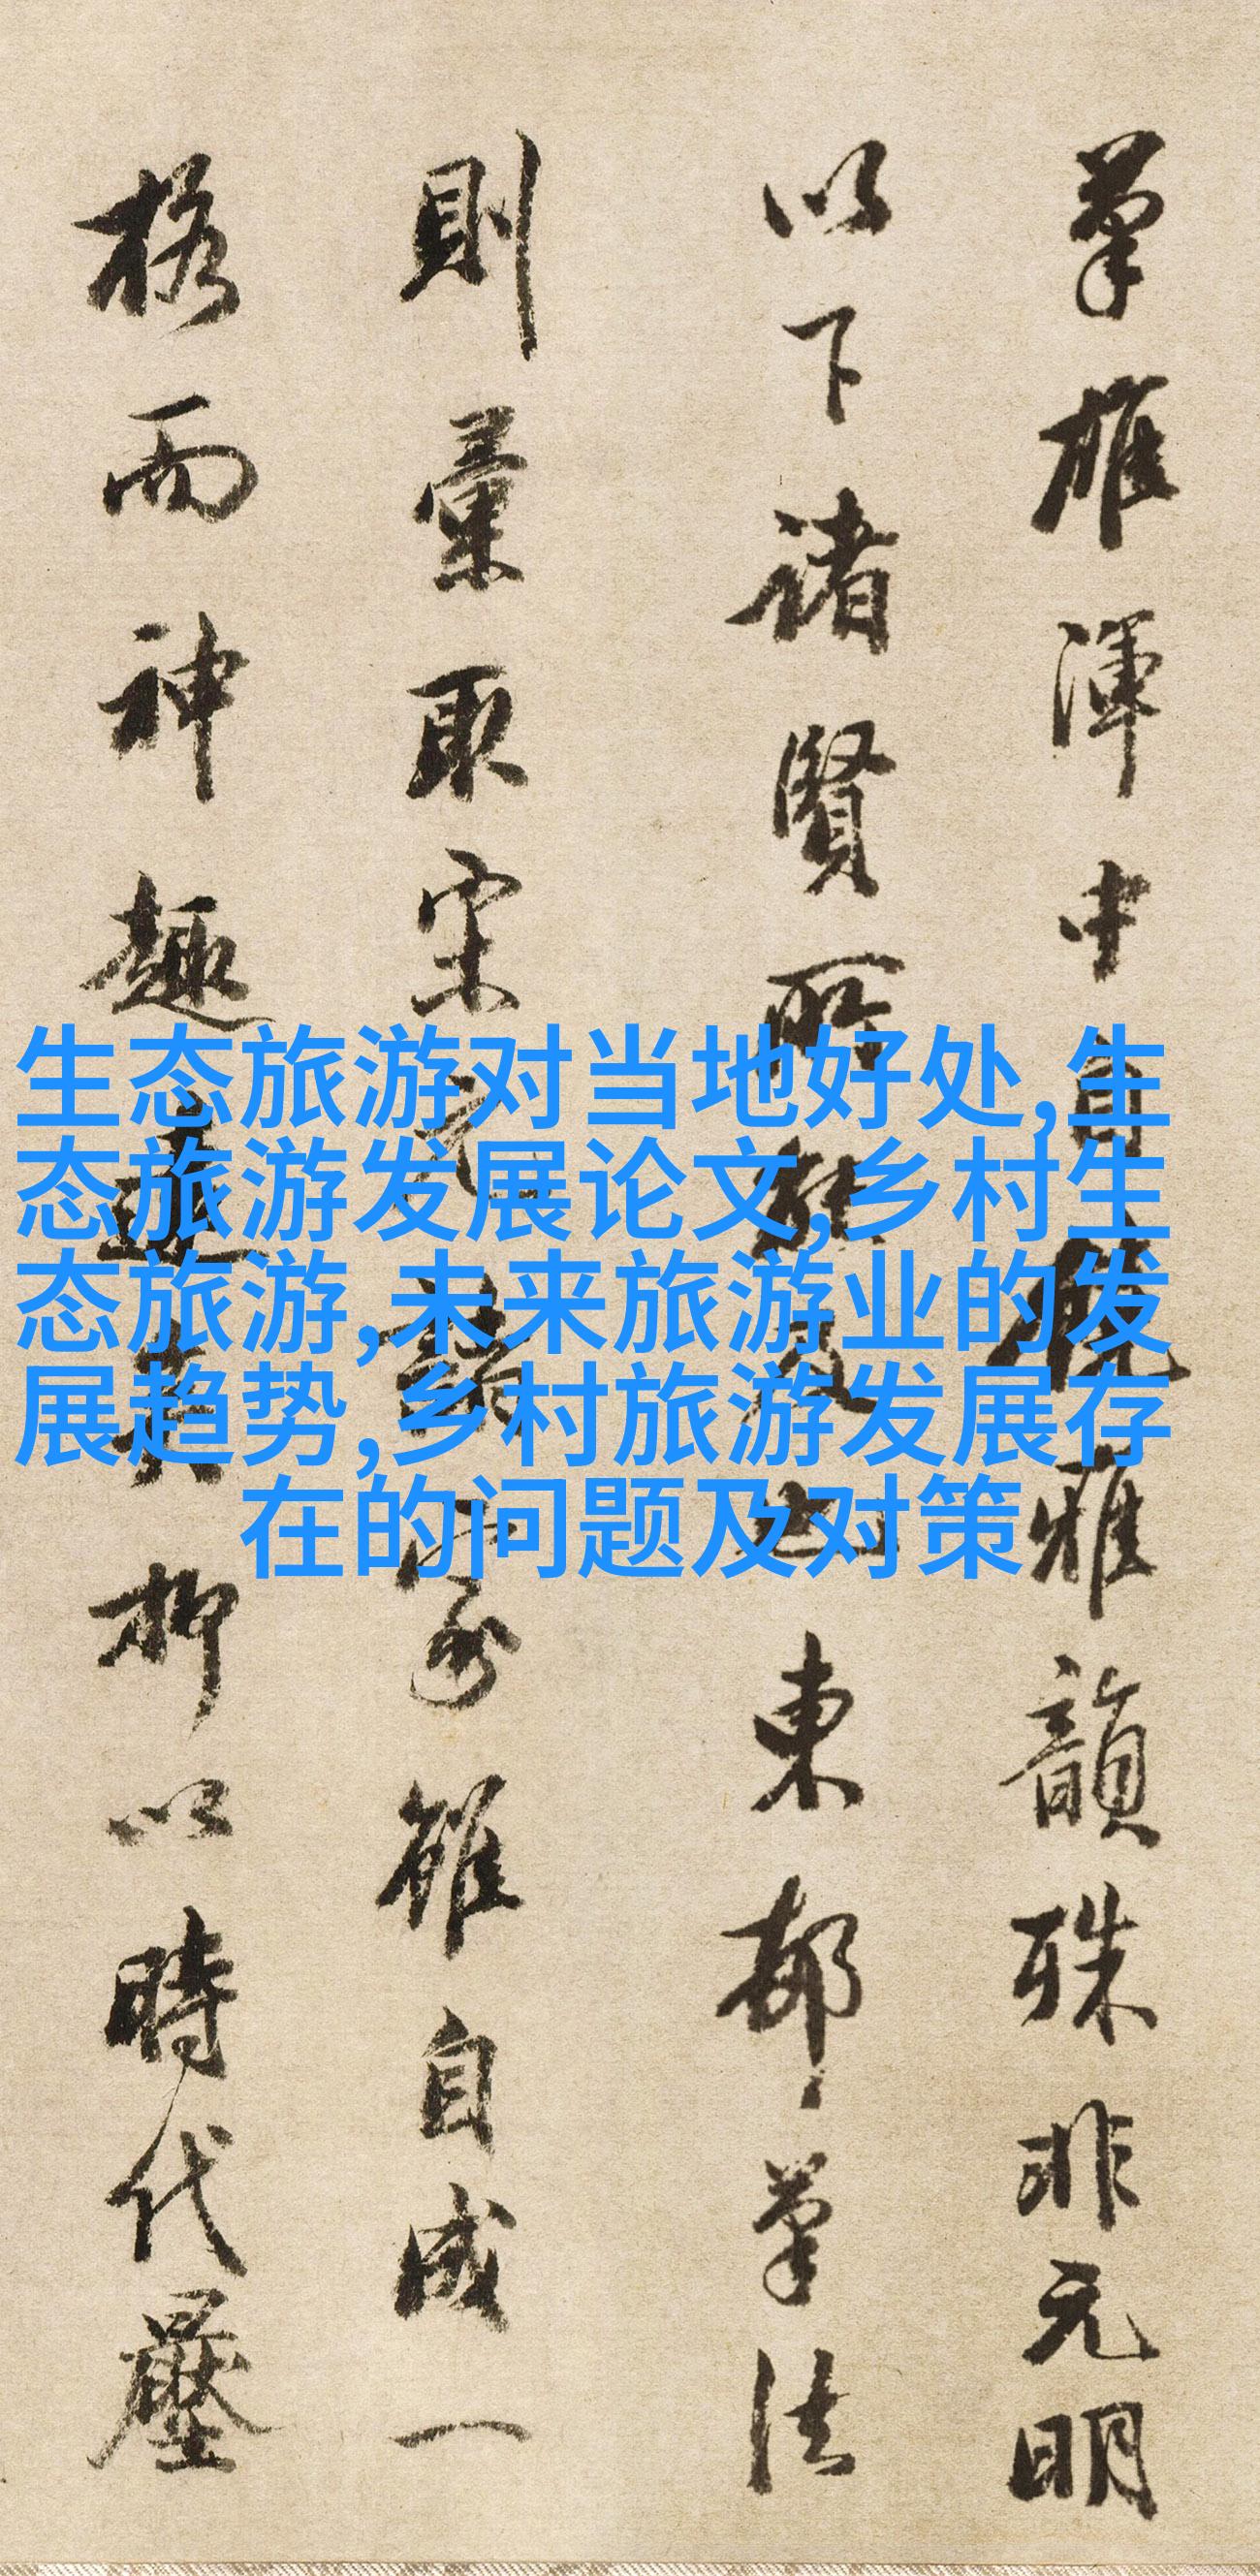 筆雄渾中自饒雅韻殊非元明
以下諸賢所能及也東邨筆法
則彙取宋元諸家雖自成一
格而神趣遠矣抑以時代壓
生态旅游对当地好处,生
态旅游发展论文,乡村生
态旅游,未来旅游业的发
展趋势,乡村旅游发展存
在的问题及对策